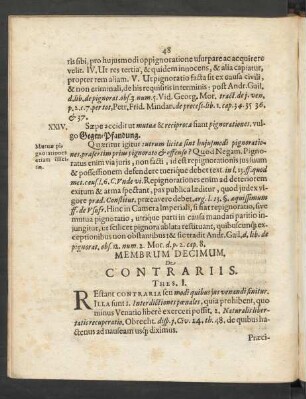 48
ris sibi, pro hujusmodi oppignoratione usurpare ac acquirere
velit. IV. Ut res tertia, & quidem innocens, & alia capiatur,
propter rem aliam. V. Ut pignoratio facta sit ex causa civili,
& non criminali, de his requisitis in terminis. post Andr. Gail,
d. lib. de pignorat. obs. 3. num. 5. Vid. Georg. Mor, tract. de j. ven.
p. 2. c. 7. per tot. Petr. Frid. Mindan. de process. lib. 1. cap. 34. 35. 36,
& 37.
XXIV. Sæpe accidit ut mutuæ & reciprocæ fiant pignorationes. vul-
go Gegen-Pfandung.
Mutuæ pi-
gnorationes
etiam illici-
tæ.
Quæritur igitur utrum licita sint hujusmodi pignoratio-
nes, præsertim prius pignorato & offenso? Quod Negam. Pignora-
tius enim via juris, non facti, id est repignorationis jus suum
& possessionem defendere tuerique debet
met. cens. l. 6. C. Unde vi. Repignorationes enim ad deteriorem
exitum & arma spectant, pax publica læditur, quod judex vi-
gore præd. Constitut. præcavere debet. arg. l. 15. §. æquissimum
ff. de Usufr. Hinc in Camera Imperiali, si fiat repignoratio, sive
mutua pignoratio, utrique parti in causa mandati paritio in-
jungitur, ut scilicet pignora ablata restituant, quibuscunque ex-
ceptionibus non obstantibus & fit tradit Andr. Gail, d. lib. de
pignorat. obs. 12. num. 2. Mor. d. p. 2. cap. 8.
MEMBRUM DECIMUM,
De
CONTRARIIS.
THES. I.
REstant CONTRARIA seu modi quibus jus venandi finitur.
ILLA sunt 1. Interdictiones penales, quia prohibent, quo
minus Venatio liberè exerceri possit. 2. Naturalis liber-
tatis recuperatio, Obrecht. disp. 1, Civ. 24. th. 48. de quibus ha-
ctenus ad nauseam usq; diximus.
Præci-